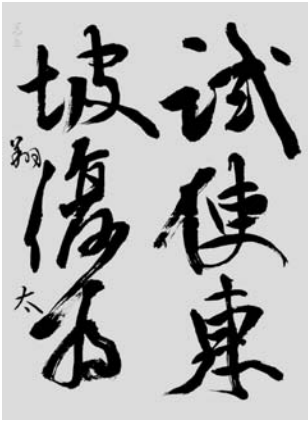 試使東
坡復為
翔太